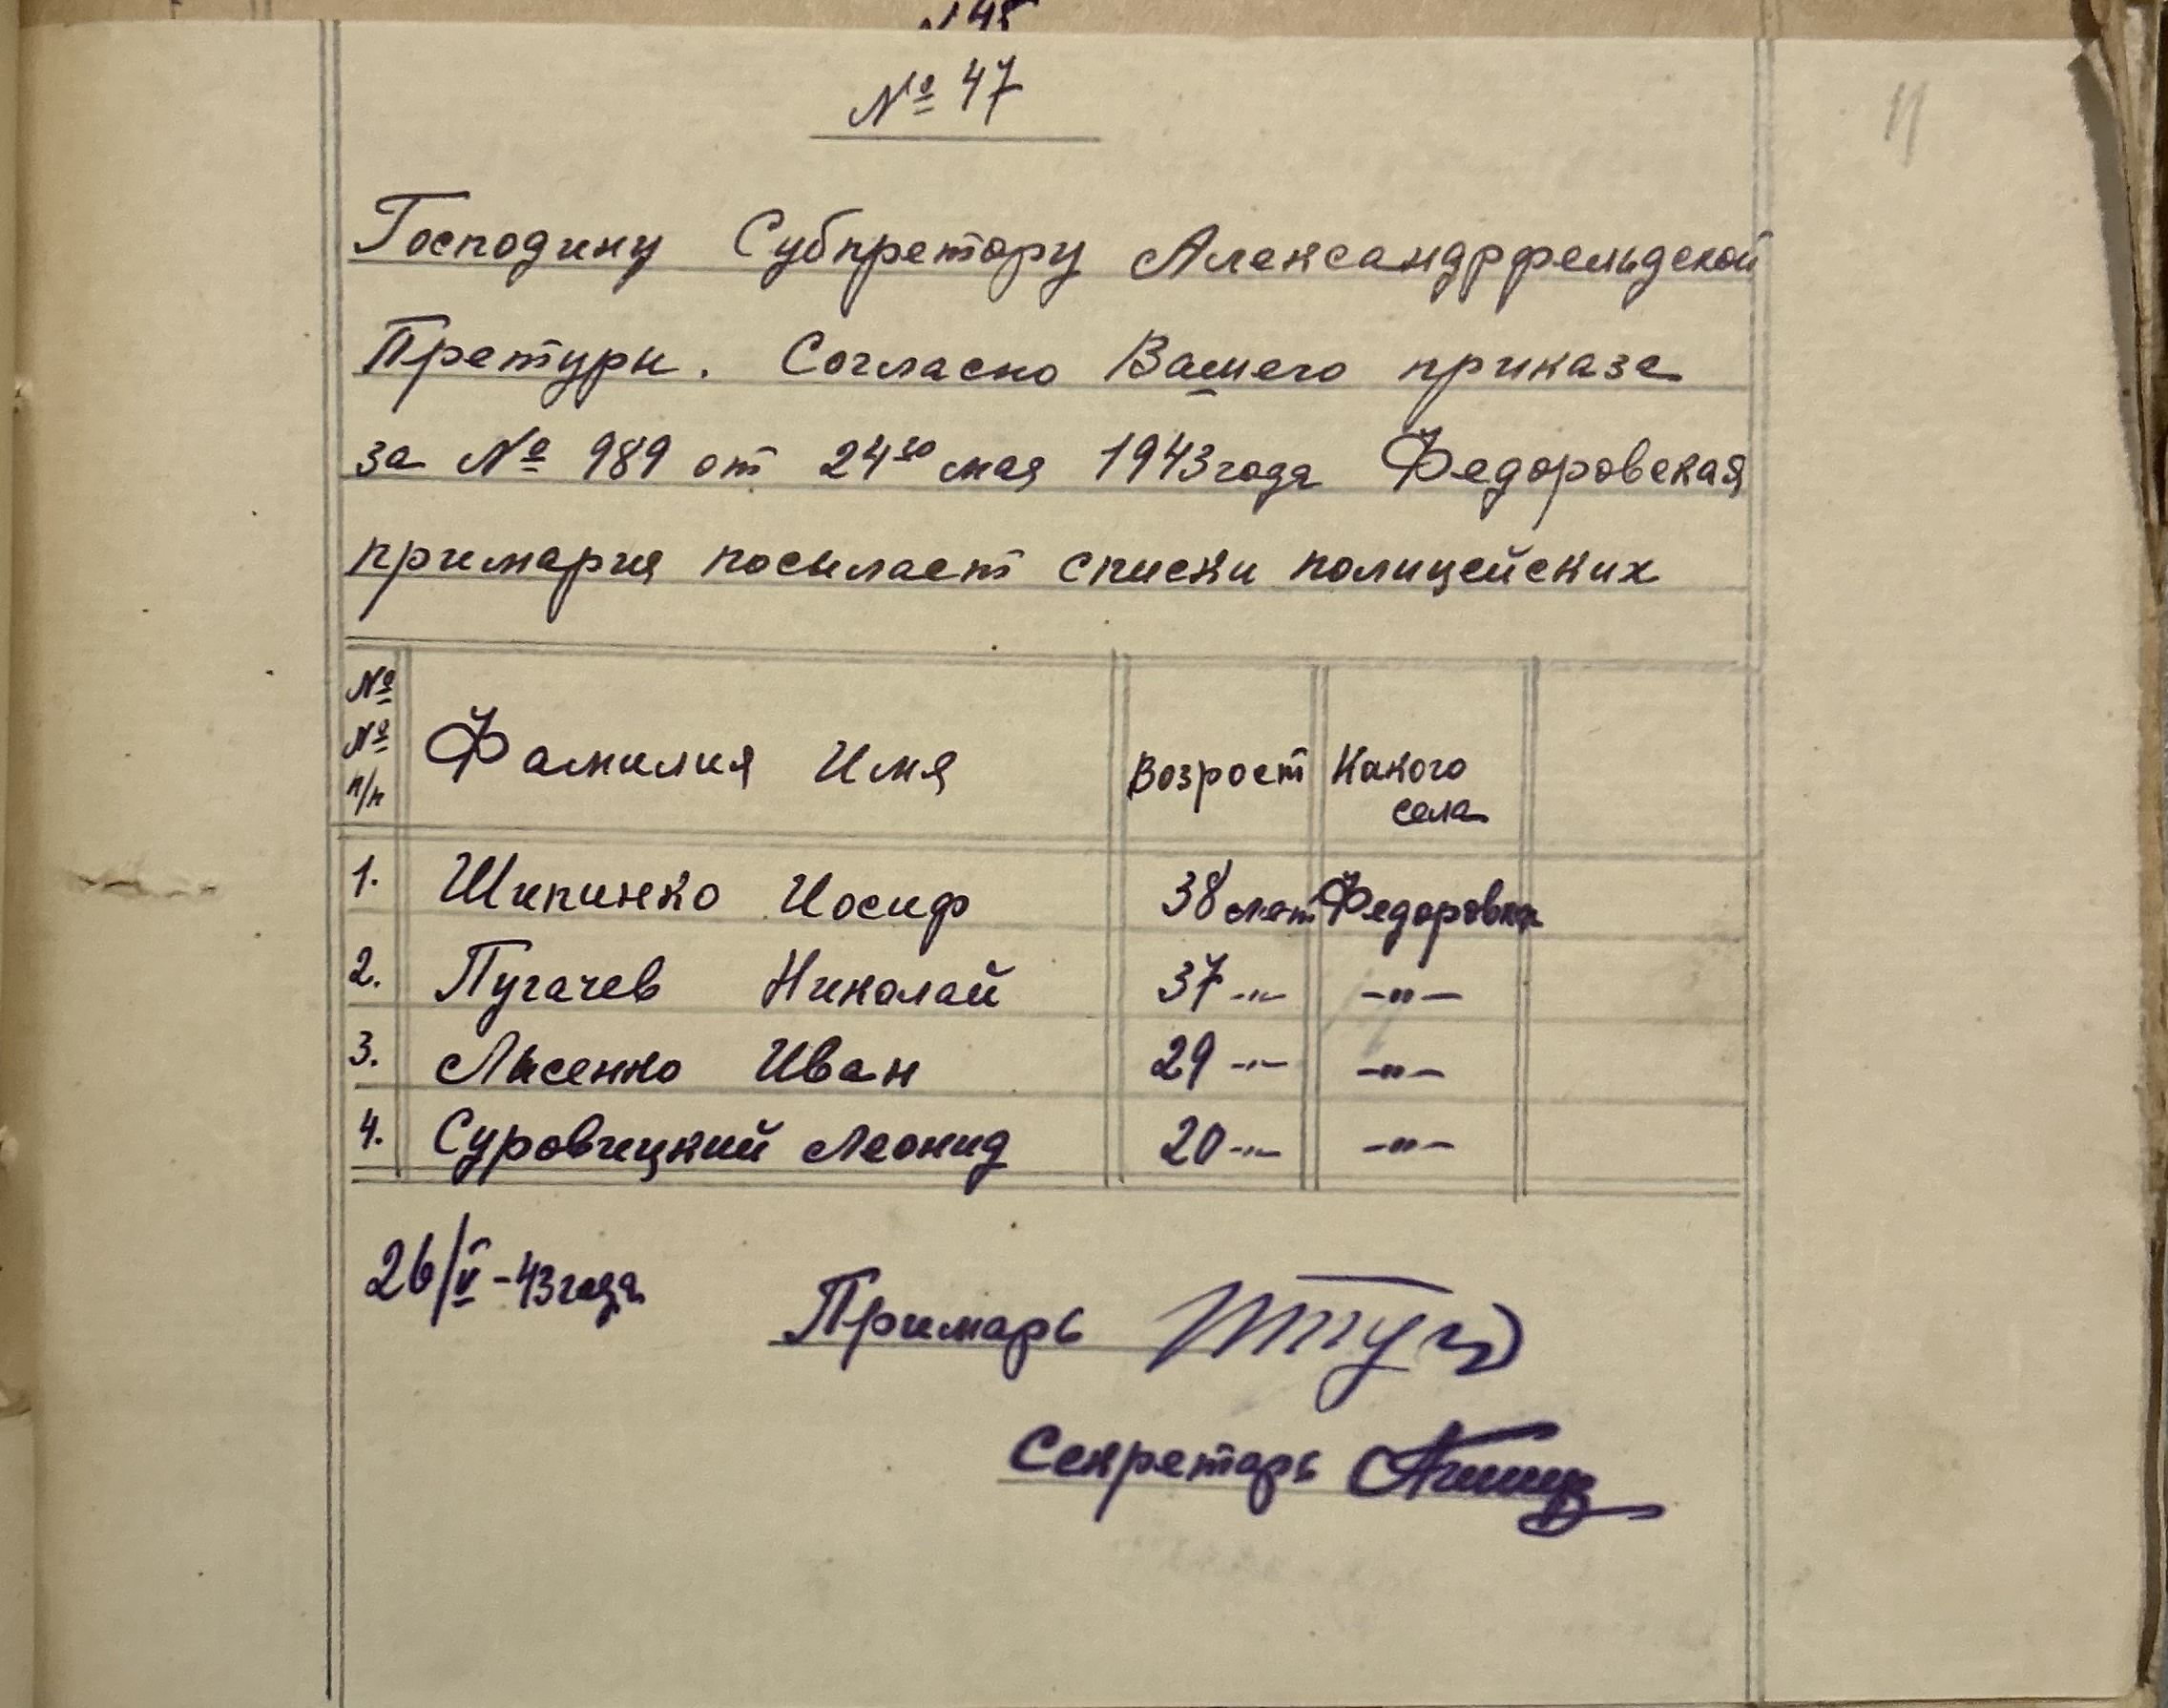 № 47
11
Господину Субпретору Александрфельдской
Претуры. Согласно Вашего приказа
за № 989 от 24го мая 1943 года Федоровская
примария посылает списки полицейских
№ № п/п Фамилия Имя Возрост Какого села
1. Шипинко Иосиф 38 лет Федоровка
2. Пугачев Николай 37 -"- -"-
3. Лысенко Иван 29 -"- -"-
4. Суровчицкий Леонид 20 -"- -"-
26/V-43 года
Примарь
Секретарь